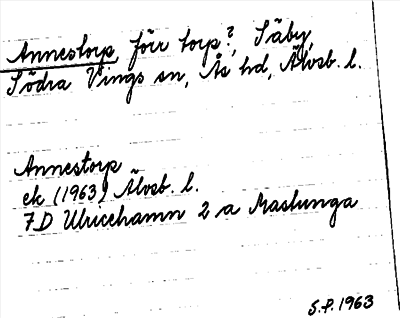 Annestorp, förr torp?, Säby,
Södra Vings sn, Ås hd, Älvsb. l.
Annestorp
ek (1963) Älvsb. l.
7D Ulricehamn 2 a Maslunga
S.P. 1963